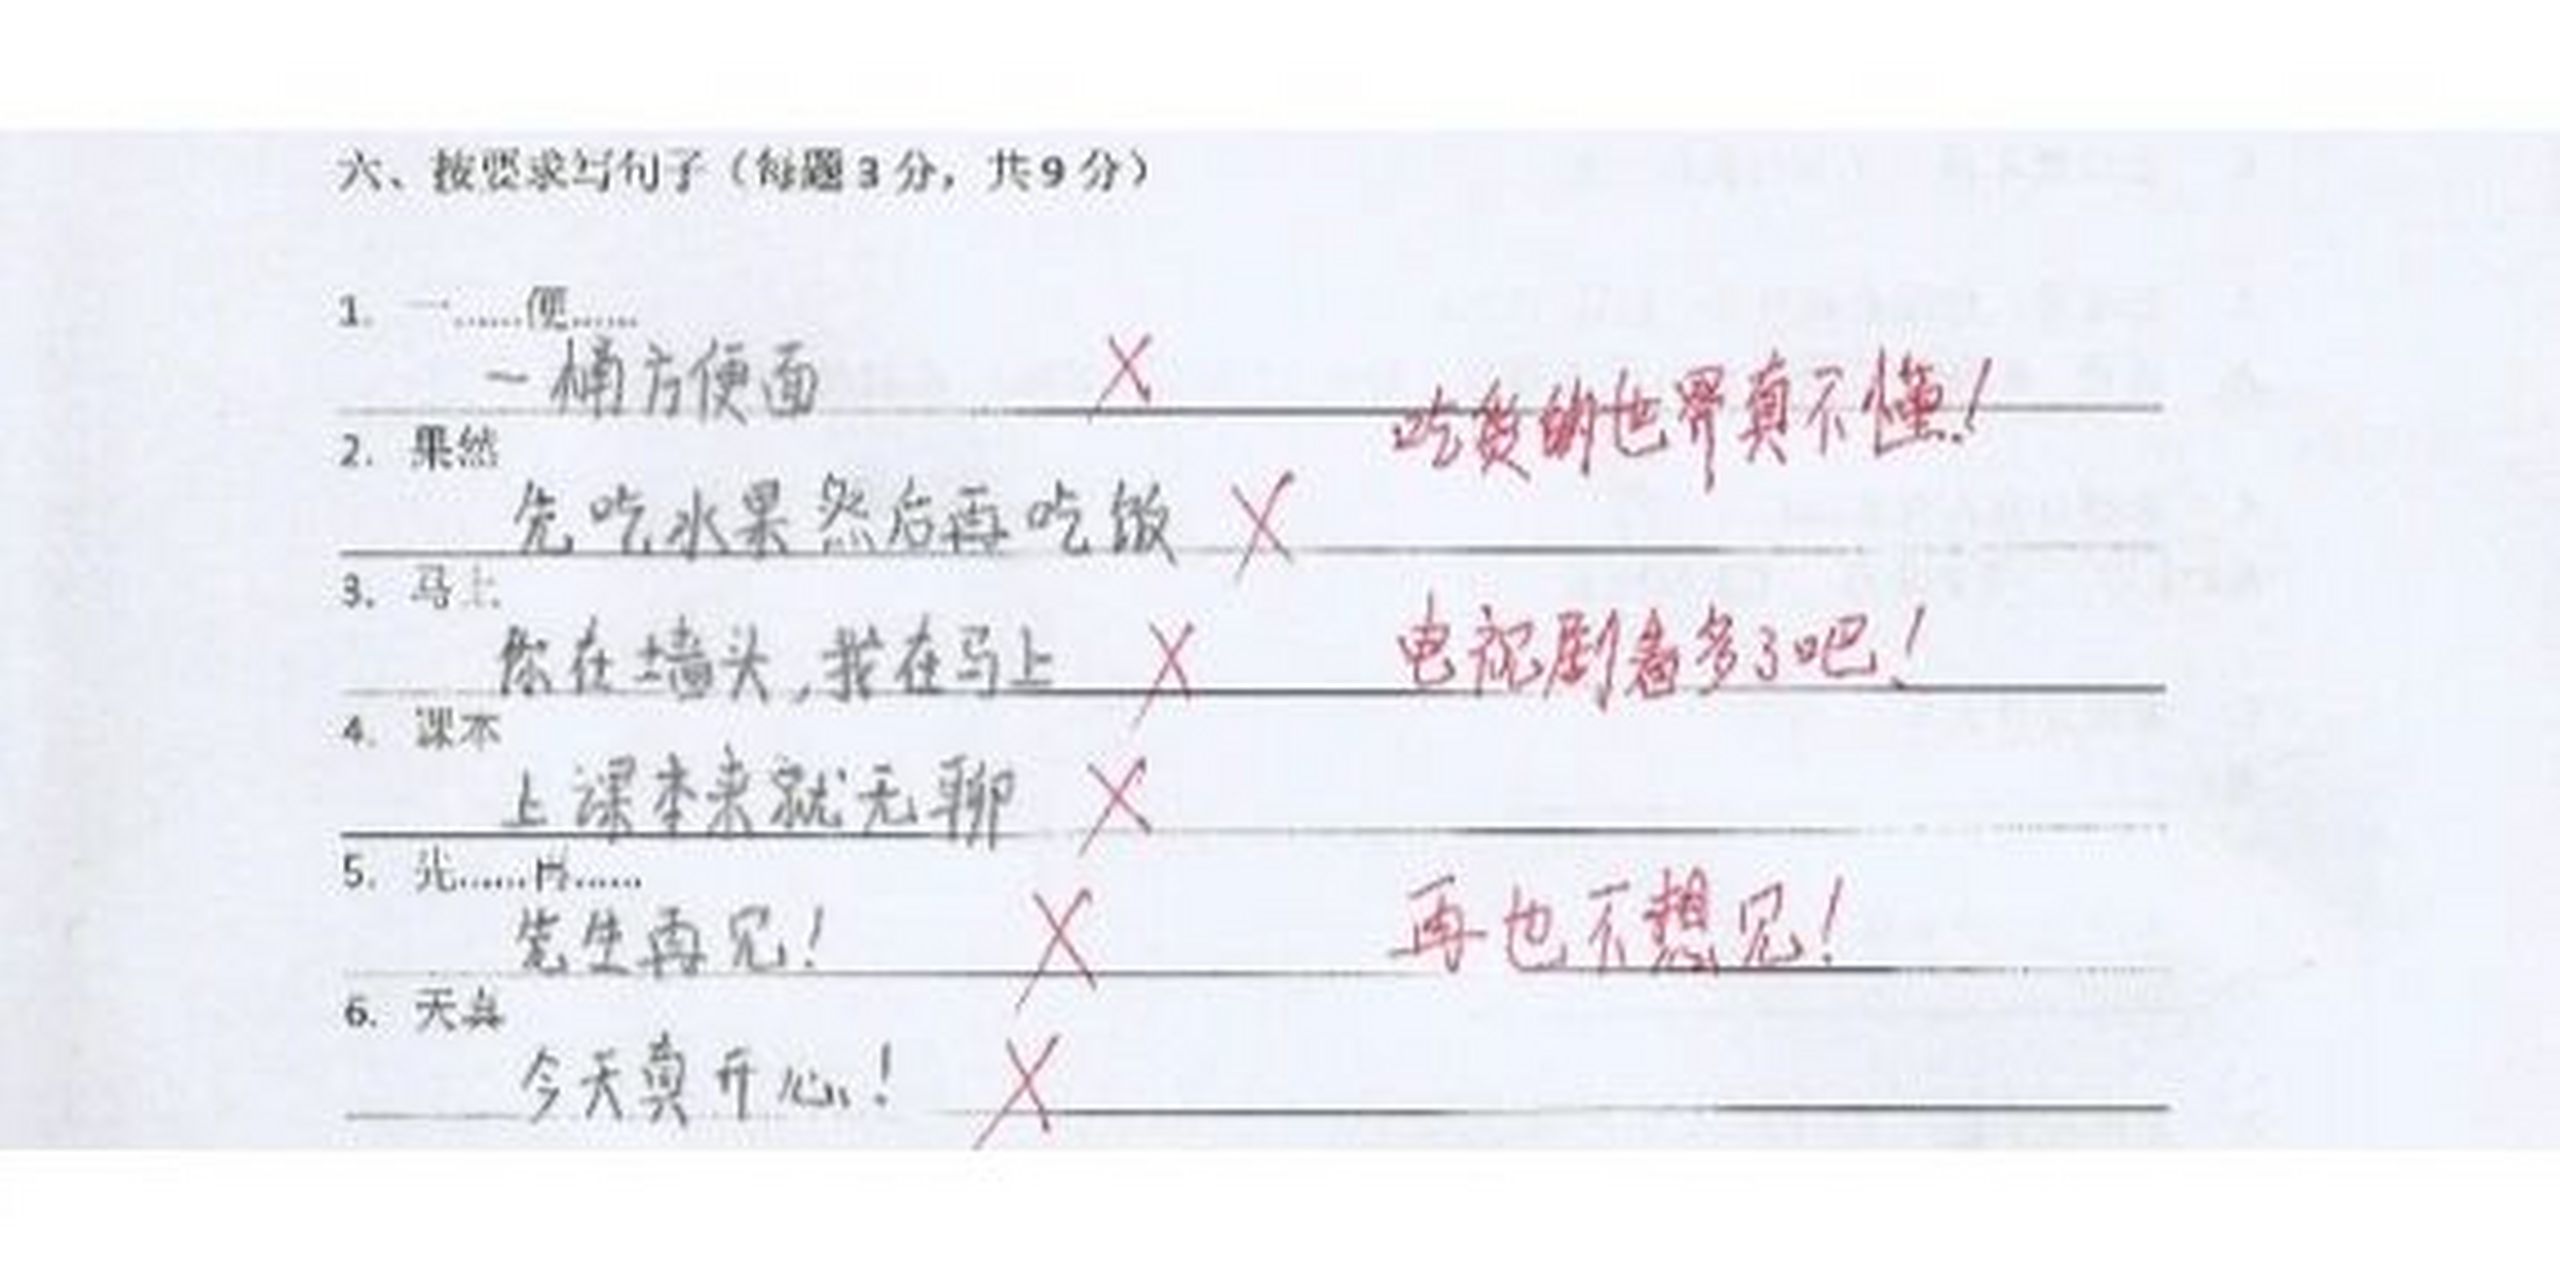 六、按要求写句子（每题3分，共9分）
1. 一……便……
一桶方便面
吃货的世界真不懂！
2. 果然
先吃水果然后再吃饭
3. 马上
你在墙头，我在马上
电视剧看多了吧！
4. 课本
上课本来就无聊
5. 先……再……
先生再见！
再也不想见！
6. 天真
今天真开心！